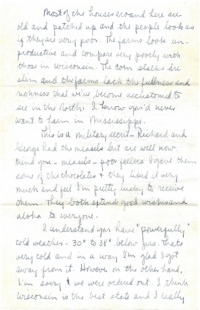 Most of the houses around here are
old and patched up and the people look as
if they are very poor. The farms look un-
productive and compare very poorly with
those in Wisconsin. The corn stalks are
slim and the farms lack the fullness and
richness that we've become accustomed to
see in the North. I know you'd never
want to farm in Mississippi.
This is a military secret - Richard and
George had the measles but are well now
mind you - measles - poor fellers I gave them
some of the chocolates & they liked it very
much and feel I'm pretty lucky to receive
them. They both extend good wishes and
aloha to everyone.
I understand you have "powerfully"
cold weather - 30° to 38° below zero. That's
very cold and in a way I'm glad I got
away from it. However on the other hand,
I'm sorry we were ordered out. I think
Wisconsin is the best state and I really